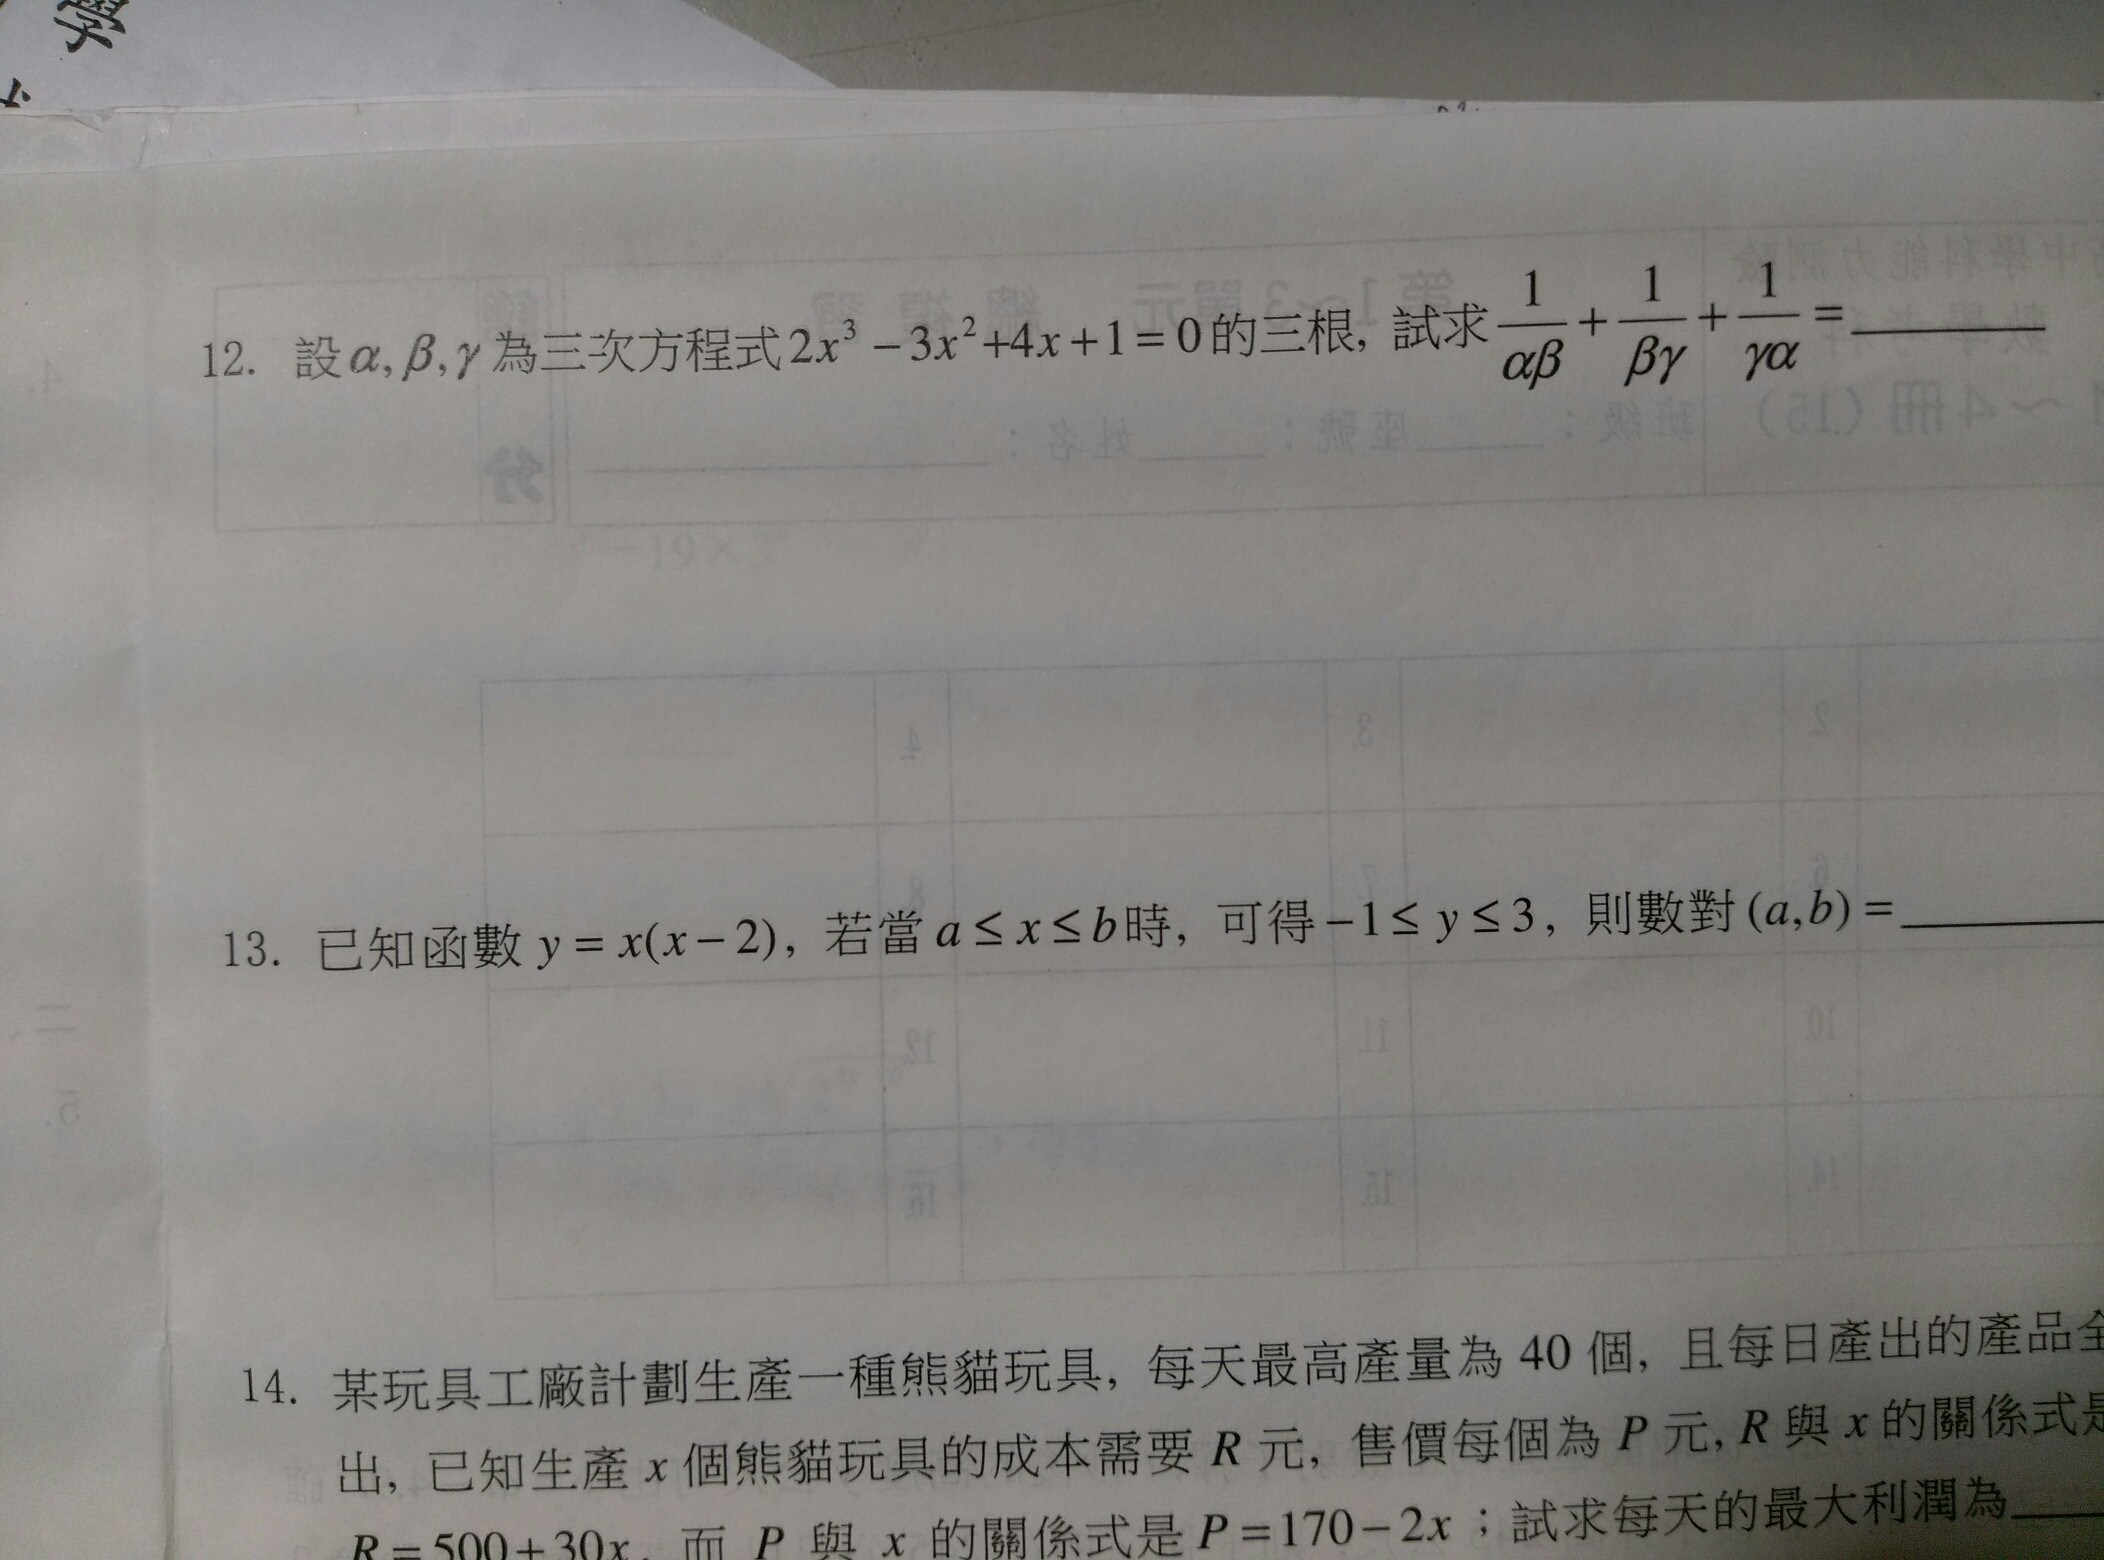 12. 設α, β, γ為三次方程式2x³－3x²+4x+1=0的三根, 試求 1/αβ + 1/βγ + 1/γα = ______
13. 已知函數 y = x(x－2), 若當 a ≤ x ≤ b時, 可得－1 ≤ y ≤ 3, 則數對 (a,b) = ______
14. 某玩具工廠計劃生產一種熊貓玩具, 每天最高產量為 40 個, 且每日產出的產品全
出, 已知生產 x 個熊貓玩具的成本需要 R 元, 售價每個為 P 元, R 與 x 的關係式是
R = 500+30x, 而 P 與 x 的關係式是 P=170－2x；試求每天的最大利潤為______